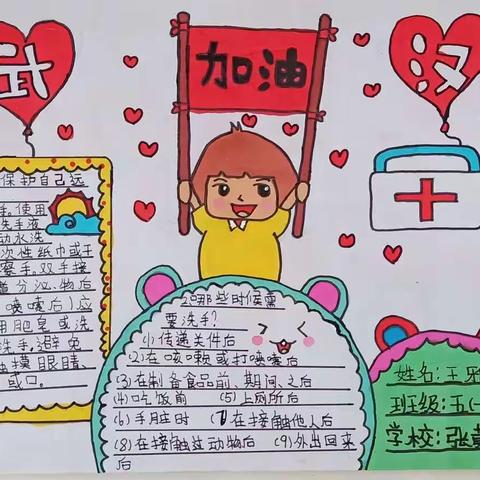 武
加油
汉
保护自己远
手。使用
洗手液
动水洗
次性纸巾或干
擦手。双手接
道分泌物后
喷嚏后)应
用肥皂或洗
洗手,避免
触摸眼睛、
或口。
2哪些时候需
要洗手?
(1)传递关件后
(2)在咳嗽或打喷嚏后
(3)在制备食品前、期间、之后
(4)吃饭前 (5)上厕所后
(6)手脏时 7在接触他人后
(8)在接触过动物后 (9)外出回来
后
姓名:王
班级:五(一
学校:张